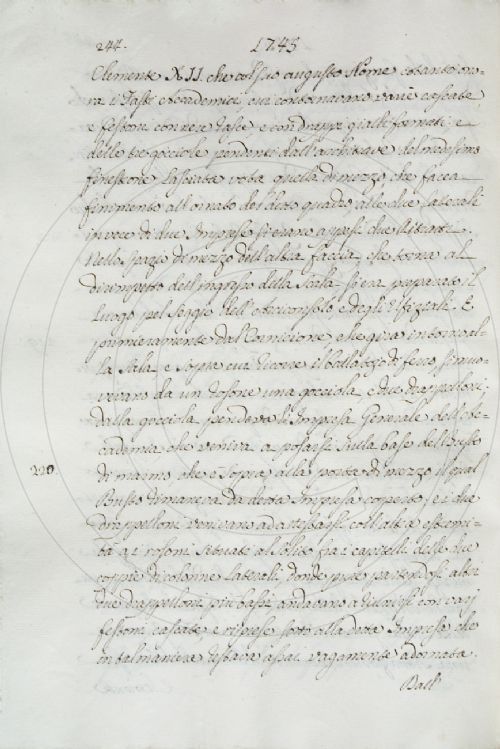 244. 1743
Clemente XII. che col suo augusto Nome cotanto ono-
ra i Fasti Accademici, cui contornavano varie cascate
e festoni con nere fasce e con drappi gialli formati: e
delle tre gocciole pendenti dall'architrave del medesimo
finestrone lasciata vota quella di mezzo che facea
finimento all'ornato del detto quadro, alle due laterali
in vece di due Imprese si erano appesi due Ritratti.
Nello spazio di mezzo dell'altra faccia, che torna al
dirimpetto dell'ingresso della Sala si era preparato il
Luogo pel seggio dell'Arciconsolo e degli Ufiziali. E
primieramente dal Cornicione, che gira intorno al-
la Sala, e sopra cui ricorre il ballatojo di ferro, si muo-
vevano da un rosone una gocciola, e due drappelloni:
dalla gocciola pendeva l'Impresa Generale dell'Ac-
cademia che veniva a posarsi sulla base del Busto
220. di marmo, che è sopra alla porta di mezzo il qual
Busto rimaneva da detta Impresa coperto, e i due
drappelloni venivano ad attestarsi coll'altra estremi-
tà a i rosoni situati al solito fra i capitelli delle due
coppie di colonne laterali, donde pure partendosi altri
due drappelloni più bassi andavano a riunirsi con varj
festoni cascate e riprese sotto alla detta Impresa che
in tal maniera restava assai vagamente adornata.
Dall'